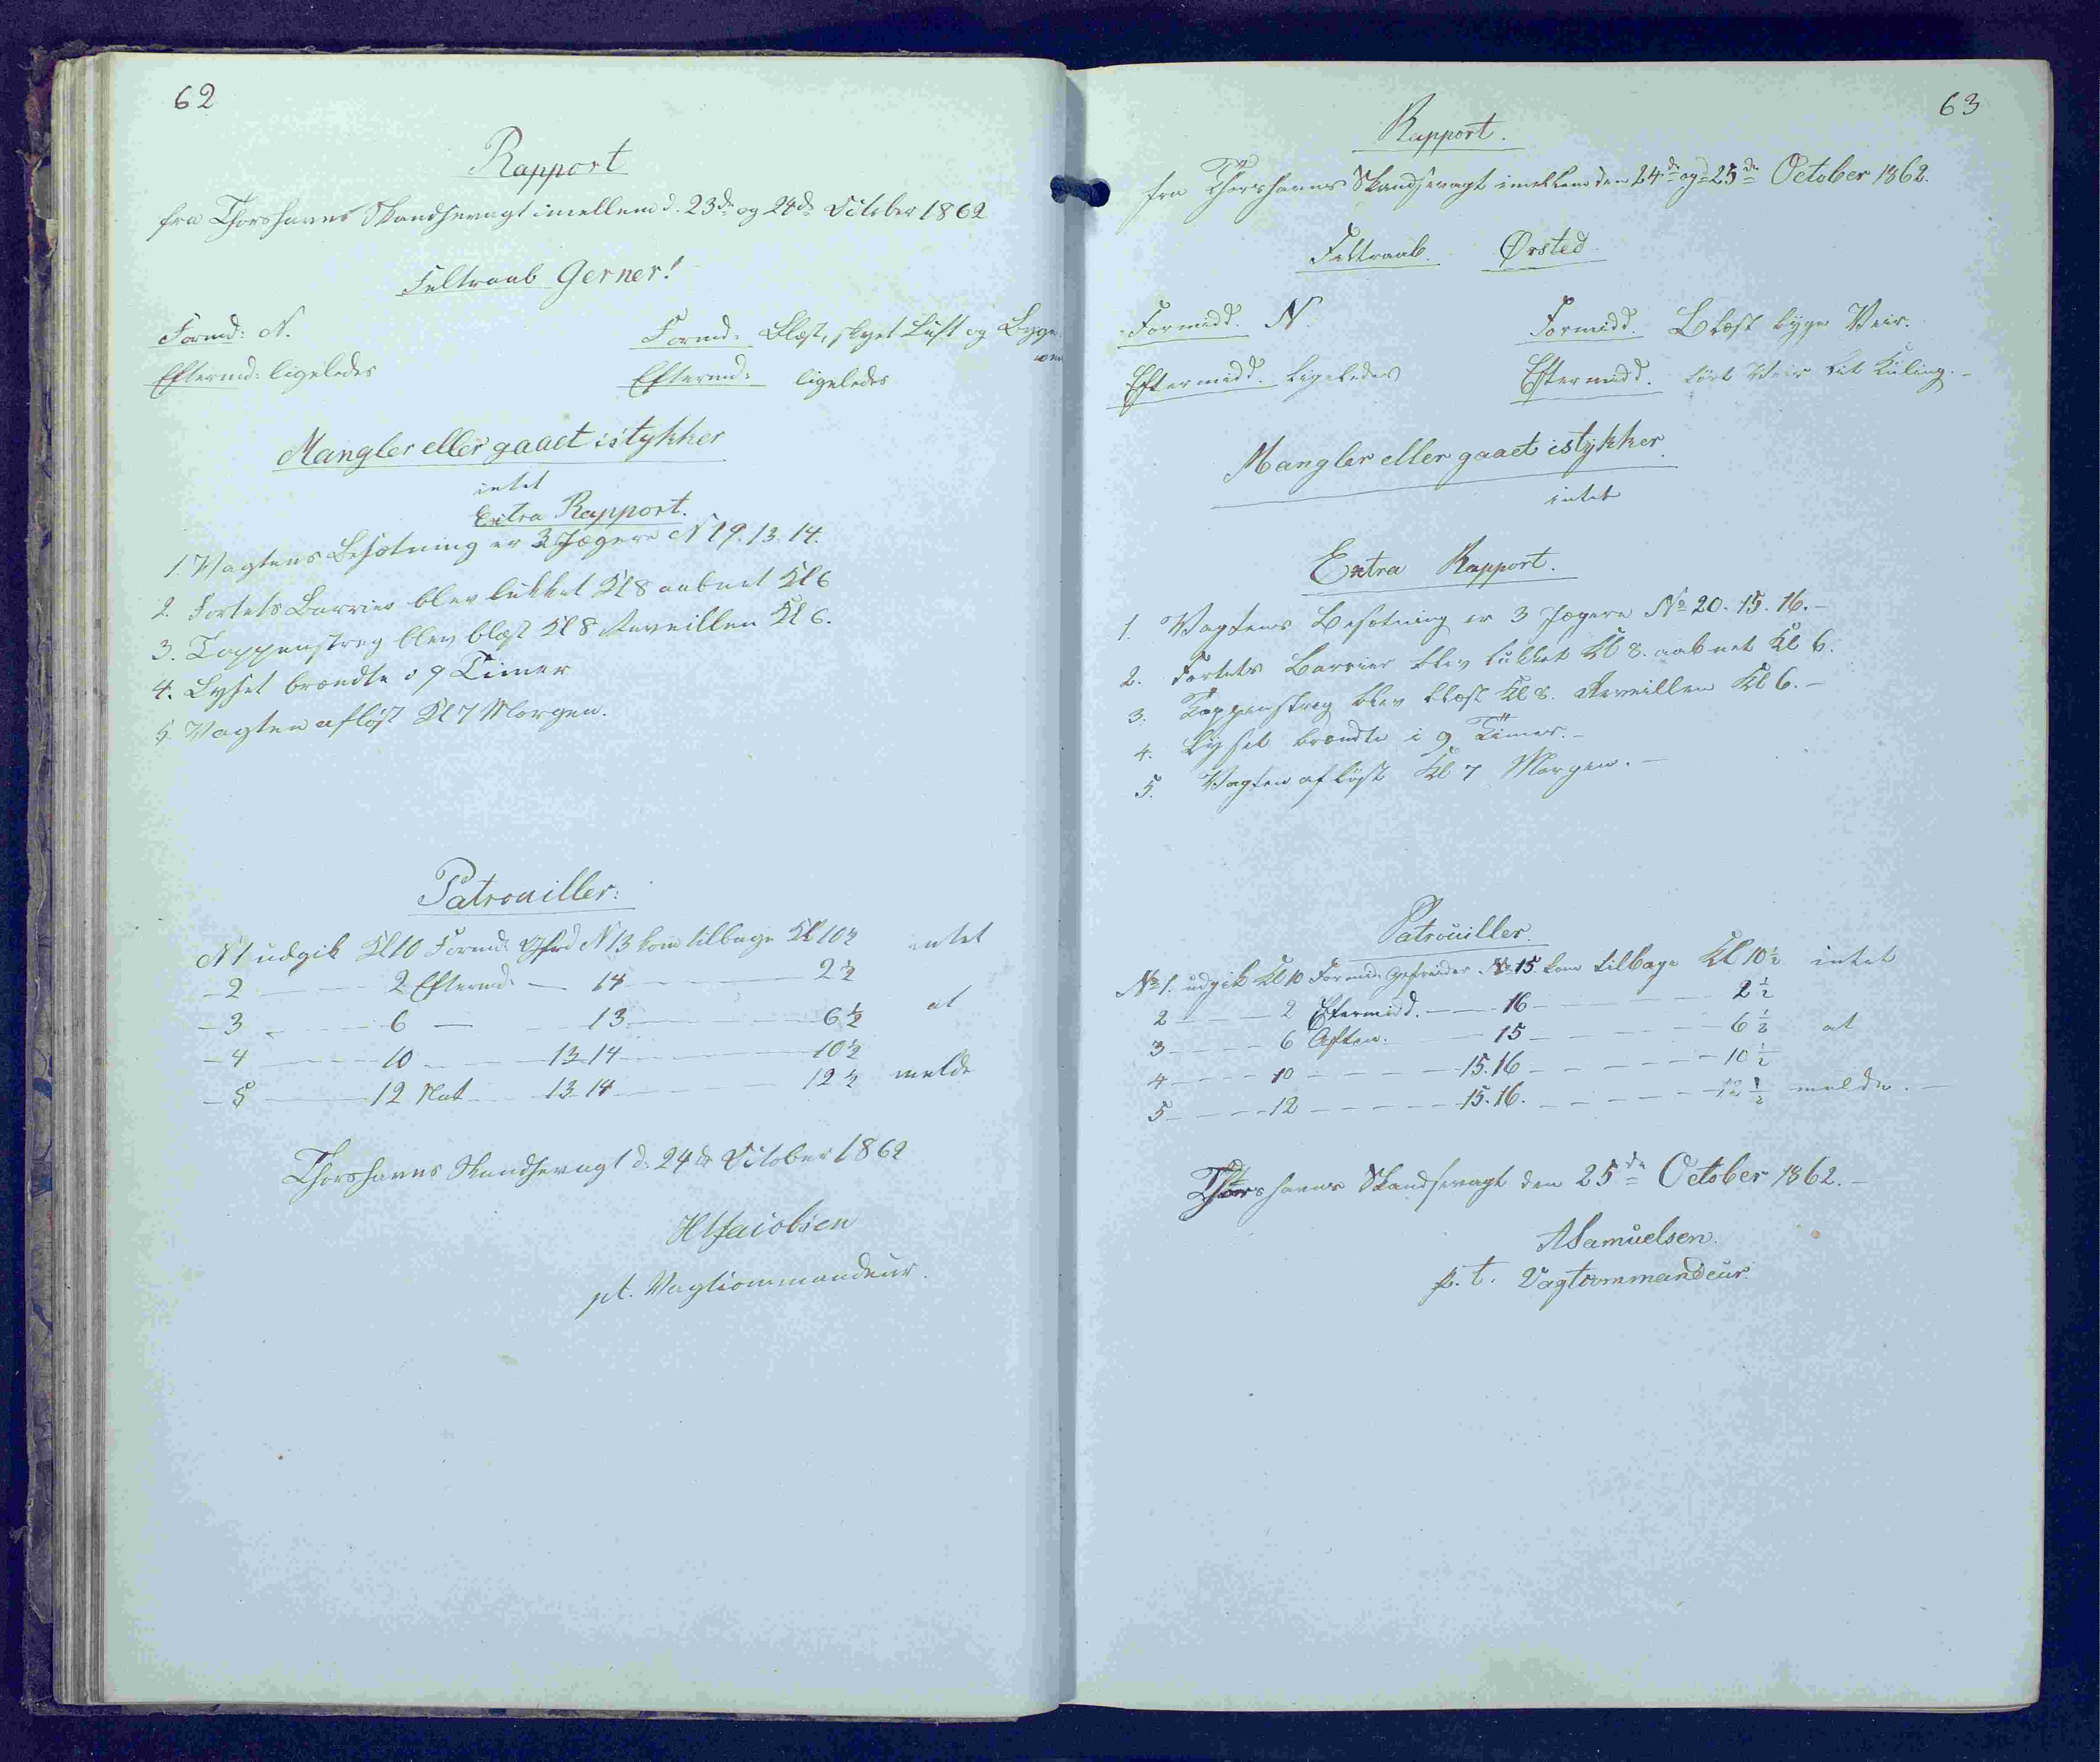 62
Rapport
fra Thorshavns Skandsevagt imellem d. 23de og 24de October 1862
Feltraab Gerner!
Formd: N. Formd: Blæst, skyet Luft og Byge
Eftermd: ligeledes Eftermd: ligeledes
Mangler eller gaaet istykker
intet
Extra Rapport.
1. Vagtens Besætning er 3 Jægere N 19. 13. 14.
2. Fortets Barrier blev lukket Kl 8 aabnet Kl 6
3. Tappenstreg blev blæst Kl 8 Reveillen Kl 6.
4. Lyset brændte i 9 Timer
5. Vagten afløst Kl 7 Morgen.
Patrouiller:
N 1 udgik Kl 10 Formd: Gfrd N 13 kom tilbage Kl 10½ intet
- 2 — 2 Eftermd: — 14 — 2½
- 3 — 6 — 13 — 6½ at
- 4 — 10 — 13 14 — 10½
- 5 — 12 Nat — 13 14 — 12½ melde
Thorshavns Skandsevagt d: 24de October 1862
HJacobsen
pt. Vagtcommandeur.
63
Rapport.
fra Thorshavns Skandsevagt imellem den 24de og 25de October 1862.
Feltraab. Ørsted
Formidd. N. Formidd. Blæst byge Veir.
Eftermidd. ligeledes Eftermidd. tört Veir lit Kuling.-
Mangler eller gaaet istykker.
intet
Extra Rapport.
1. Vagtens Besætning er 3 Jægere No 20. 15. 16.-
2. Fortets Barrier blev lukket Kl 8. aabnet Kl 6.
3. Tappenstreg blev blæst Kl 8. Reveillen Kl 6.-
4. Lyset brændte i 9 Timer.-
5. Vagten afløst Kl 7 Morgen.-
Patrouiller.
No 1. udgik Kl 10 Formid. Gefreider No 15 kom tilbage Kl 10½ intet
2 — 2 Eftermidd. — 16 — 2½
3 — 6 Aften. — 15 — 6½ at
4 — 10 — 15. 16 — 10½
5 — 12 — 15. 16. — 12½ melde.-
Thorshavns Skandsevagt den 25de October 1862.-
ASamuelsen.
p. t. Vagtcommandeur.